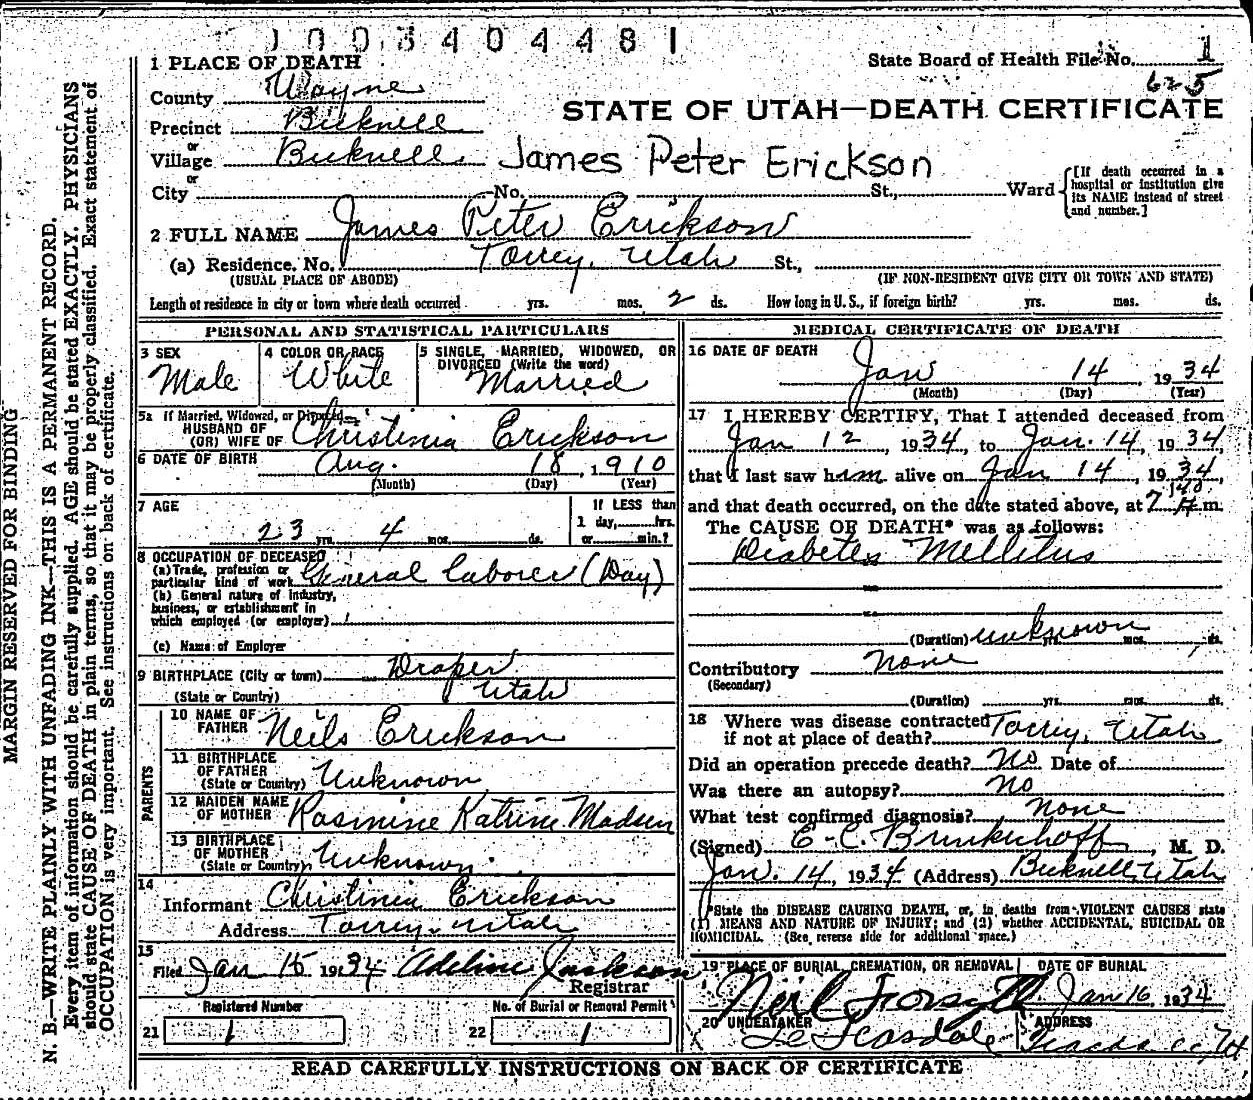 1003404481
1 PLACE OF DEATH
State Board of Health File No. 1
625
County Wayne
STATE OF UTAH—DEATH CERTIFICATE
Precinct Bicknell
or
Village Bicknell
James Peter Erickson
or
City No. St., Ward
[If death occurred in a hospital or institution give its NAME instead of street and number.]
2 FULL NAME James Peter Erickson
(a) Residence. No. Torrey, Utah St.,
(USUAL PLACE OF ABODE) (IF NON-RESIDENT GIVE CITY OR TOWN AND STATE)
Length of residence in city or town where death occurred yrs. mos. 2 ds. How long in U. S., if foreign birth? yrs. mos. ds.
PERSONAL AND STATISTICAL PARTICULARS
3 SEX
Male
4 COLOR OR RACE
White
5 SINGLE, MARRIED, WIDOWED, OR DIVORCED (Write the word)
Married
5a If Married, Widowed, or Divorced
HUSBAND OF
(OR) WIFE OF Christinia Erickson
6 DATE OF BIRTH Aug. 18, 1910
(Month) (Day) (Year)
7 AGE
23 yrs. 4 mos. ds.
If LESS than
1 day, hrs.
or min.?
8 OCCUPATION OF DECEASED
(a) Trade, profession or
particular kind of work General laborer (Day)
(b) General nature of industry,
business, or establishment in
which employed (or employer)
(c) Name of Employer
9 BIRTHPLACE (City or town) Draper
(State or Country) Utah
PARENTS
10 NAME OF
FATHER Neils Erickson
11 BIRTHPLACE
OF FATHER
(State or Country) Unknown
12 MAIDEN NAME
OF MOTHER Rasmine Katrine Madsen
13 BIRTHPLACE
OF MOTHER
(State or Country) Unknown
14
Informant Christinia Erickson
Address Torrey, Utah
15
Filed Jan 15 1934 Adeline Jackson
Registrar
Registered Number
21 1
No. of Burial or Removal Permit
22 1
MEDICAL CERTIFICATE OF DEATH
16 DATE OF DEATH
Jan 14, 1934
(Month) (Day) (Year)
17 I HEREBY CERTIFY, That I attended deceased from
Jan 12, 1934, to Jan. 14, 1934,
that I last saw him alive on Jan 14, 1934,
and that death occurred, on the date stated above, at 7:40 m.
The CAUSE OF DEATH* was as follows:
Diabetes Mellitus
(Duration) unknown yrs. mos. ds.
Contributory None
(Secondary)
(Duration) yrs. mos. ds.
18 Where was disease contracted
if not at place of death? Torrey, Utah
Did an operation precede death? No Date of
Was there an autopsy? No
What test confirmed diagnosis? none
(Signed) E. C. Brinkerhoff, M. D.
Jan. 14, 1934 (Address) Bicknell, Utah
*State the DISEASE CAUSING DEATH, or, in deaths from VIOLENT CAUSES state
(1) MEANS AND NATURE OF INJURY; and (2) whether ACCIDENTAL, SUICIDAL OR
HOMICIDAL. (See reverse side for additional space.)
19 PLACE OF BURIAL, CREMATION, OR REMOVAL
DATE OF BURIAL
Neil Forsyth
Jan 16, 1934
20 UNDERTAKER
ADDRESS
Teasdale
READ CAREFULLY INSTRUCTIONS ON BACK OF CERTIFICATE
MARGIN RESERVED FOR BINDING
N. B.—WRITE PLAINLY WITH UNFADING INK—THIS IS A PERMANENT RECORD.
Every item of information should be carefully supplied. AGE should be stated EXACTLY. PHYSICIANS
should state CAUSE OF DEATH in plain terms, so that it may be properly classified. Exact statement of
OCCUPATION is very important. See instructions on back of certificate.